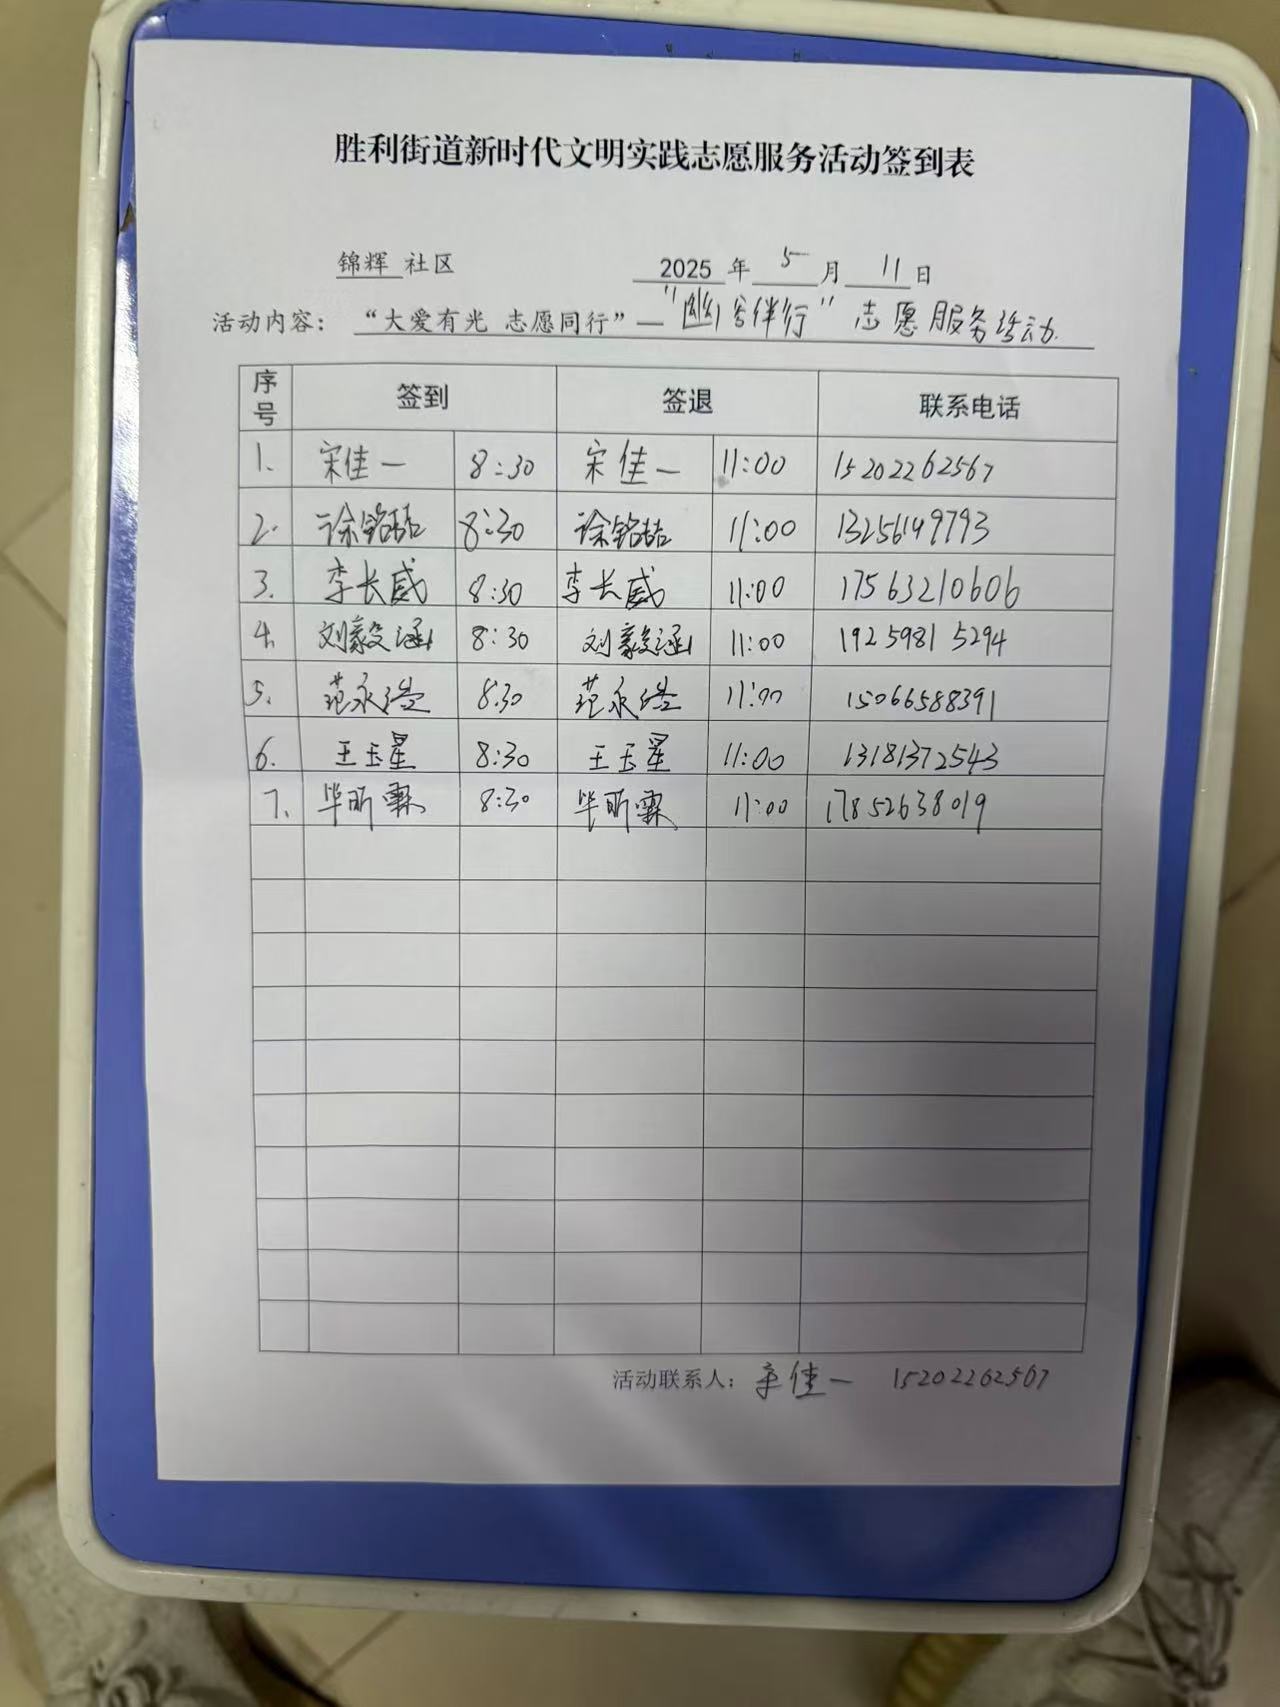 胜利街道新时代文明实践志愿服务活动签到表
锦辉 社区 2025 年 5 月 11 日
活动内容：“大爱有光 志愿同行”—“幽谷伴行”志愿服务活动
序号 签到 签退 联系电话
1. 宋佳一 8:30 宋佳一 11:00 15202262567
2. 徐铭喆 8:30 徐铭喆 11:00 13256149793
3. 李长威 8:30 李长威 11:00 17563210606
4. 刘毅涵 8:30 刘毅涵 11:00 19259815294
5. 范永浩 8:30 范永浩 11:00 15066588391
6. 王玉星 8:30 王玉星 11:00 13181372543
7. 毕昕霖 8:30 毕昕霖 11:00 17852638019
活动联系人：宋佳一 15202262567